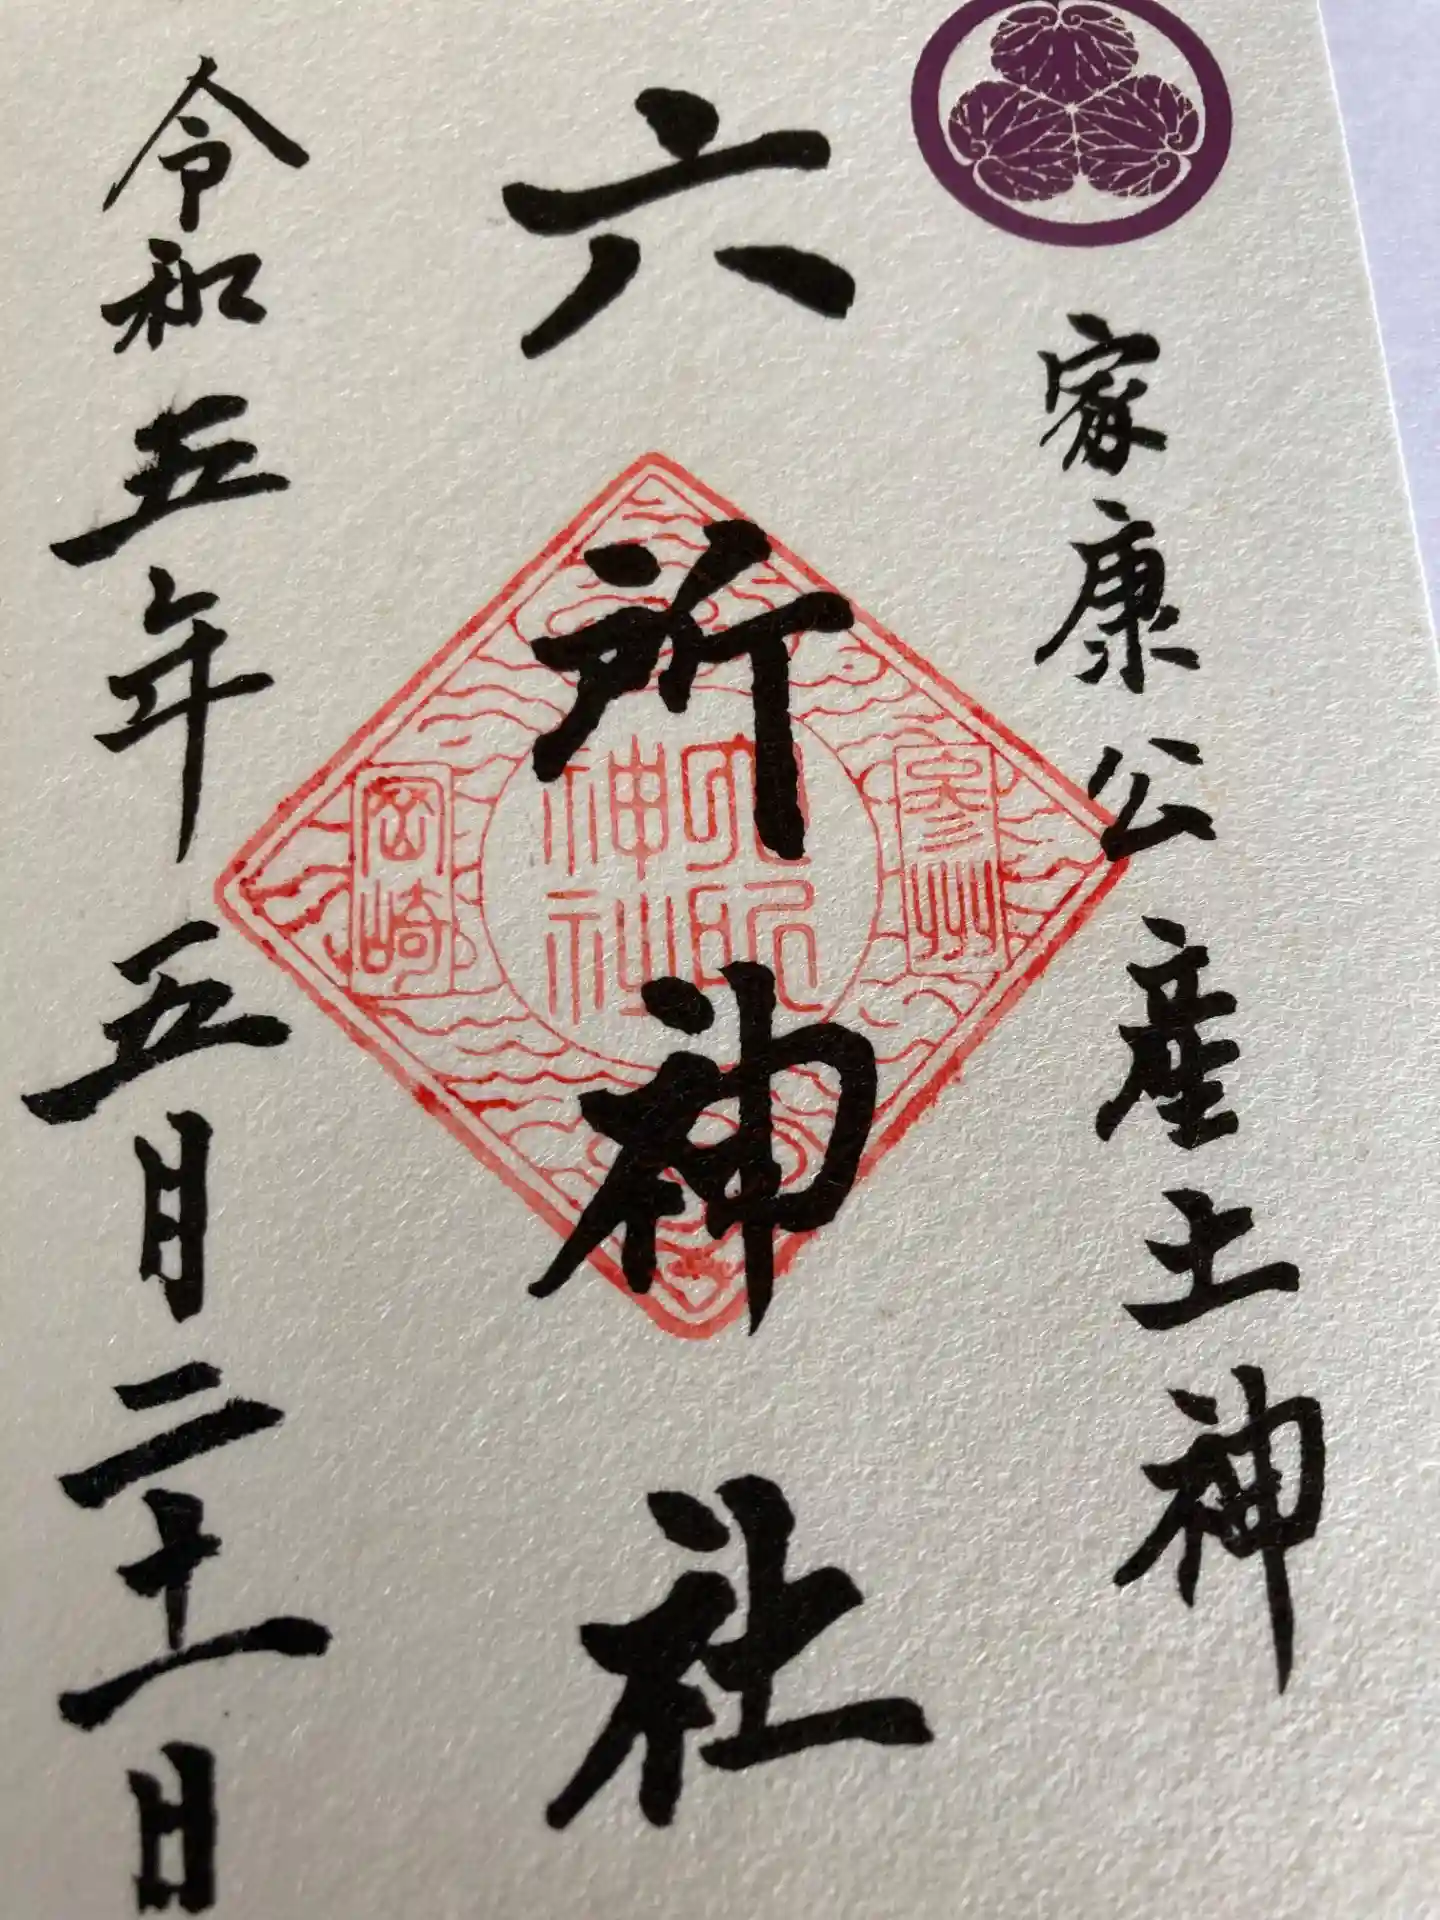 家康公産土神
六所神社
参州
六所
神社
岡崎
令和五年五月二十一日